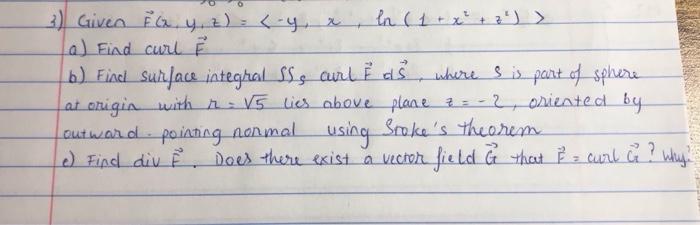 3) Given F⃗(x, y, z) = <-y, x, ln(1 + x² + z²)>
a) Find curl F⃗
b) Find surface integral SS_S curl F⃗ dS⃗, where S is part of sphere
at origin with r = √5 lies above plane z = -2, oriented by
outward-pointing normal using Stoke's theorem
c) Find div F⃗. Does there exist a vector field G⃗ that F⃗ = curl G⃗? Why?